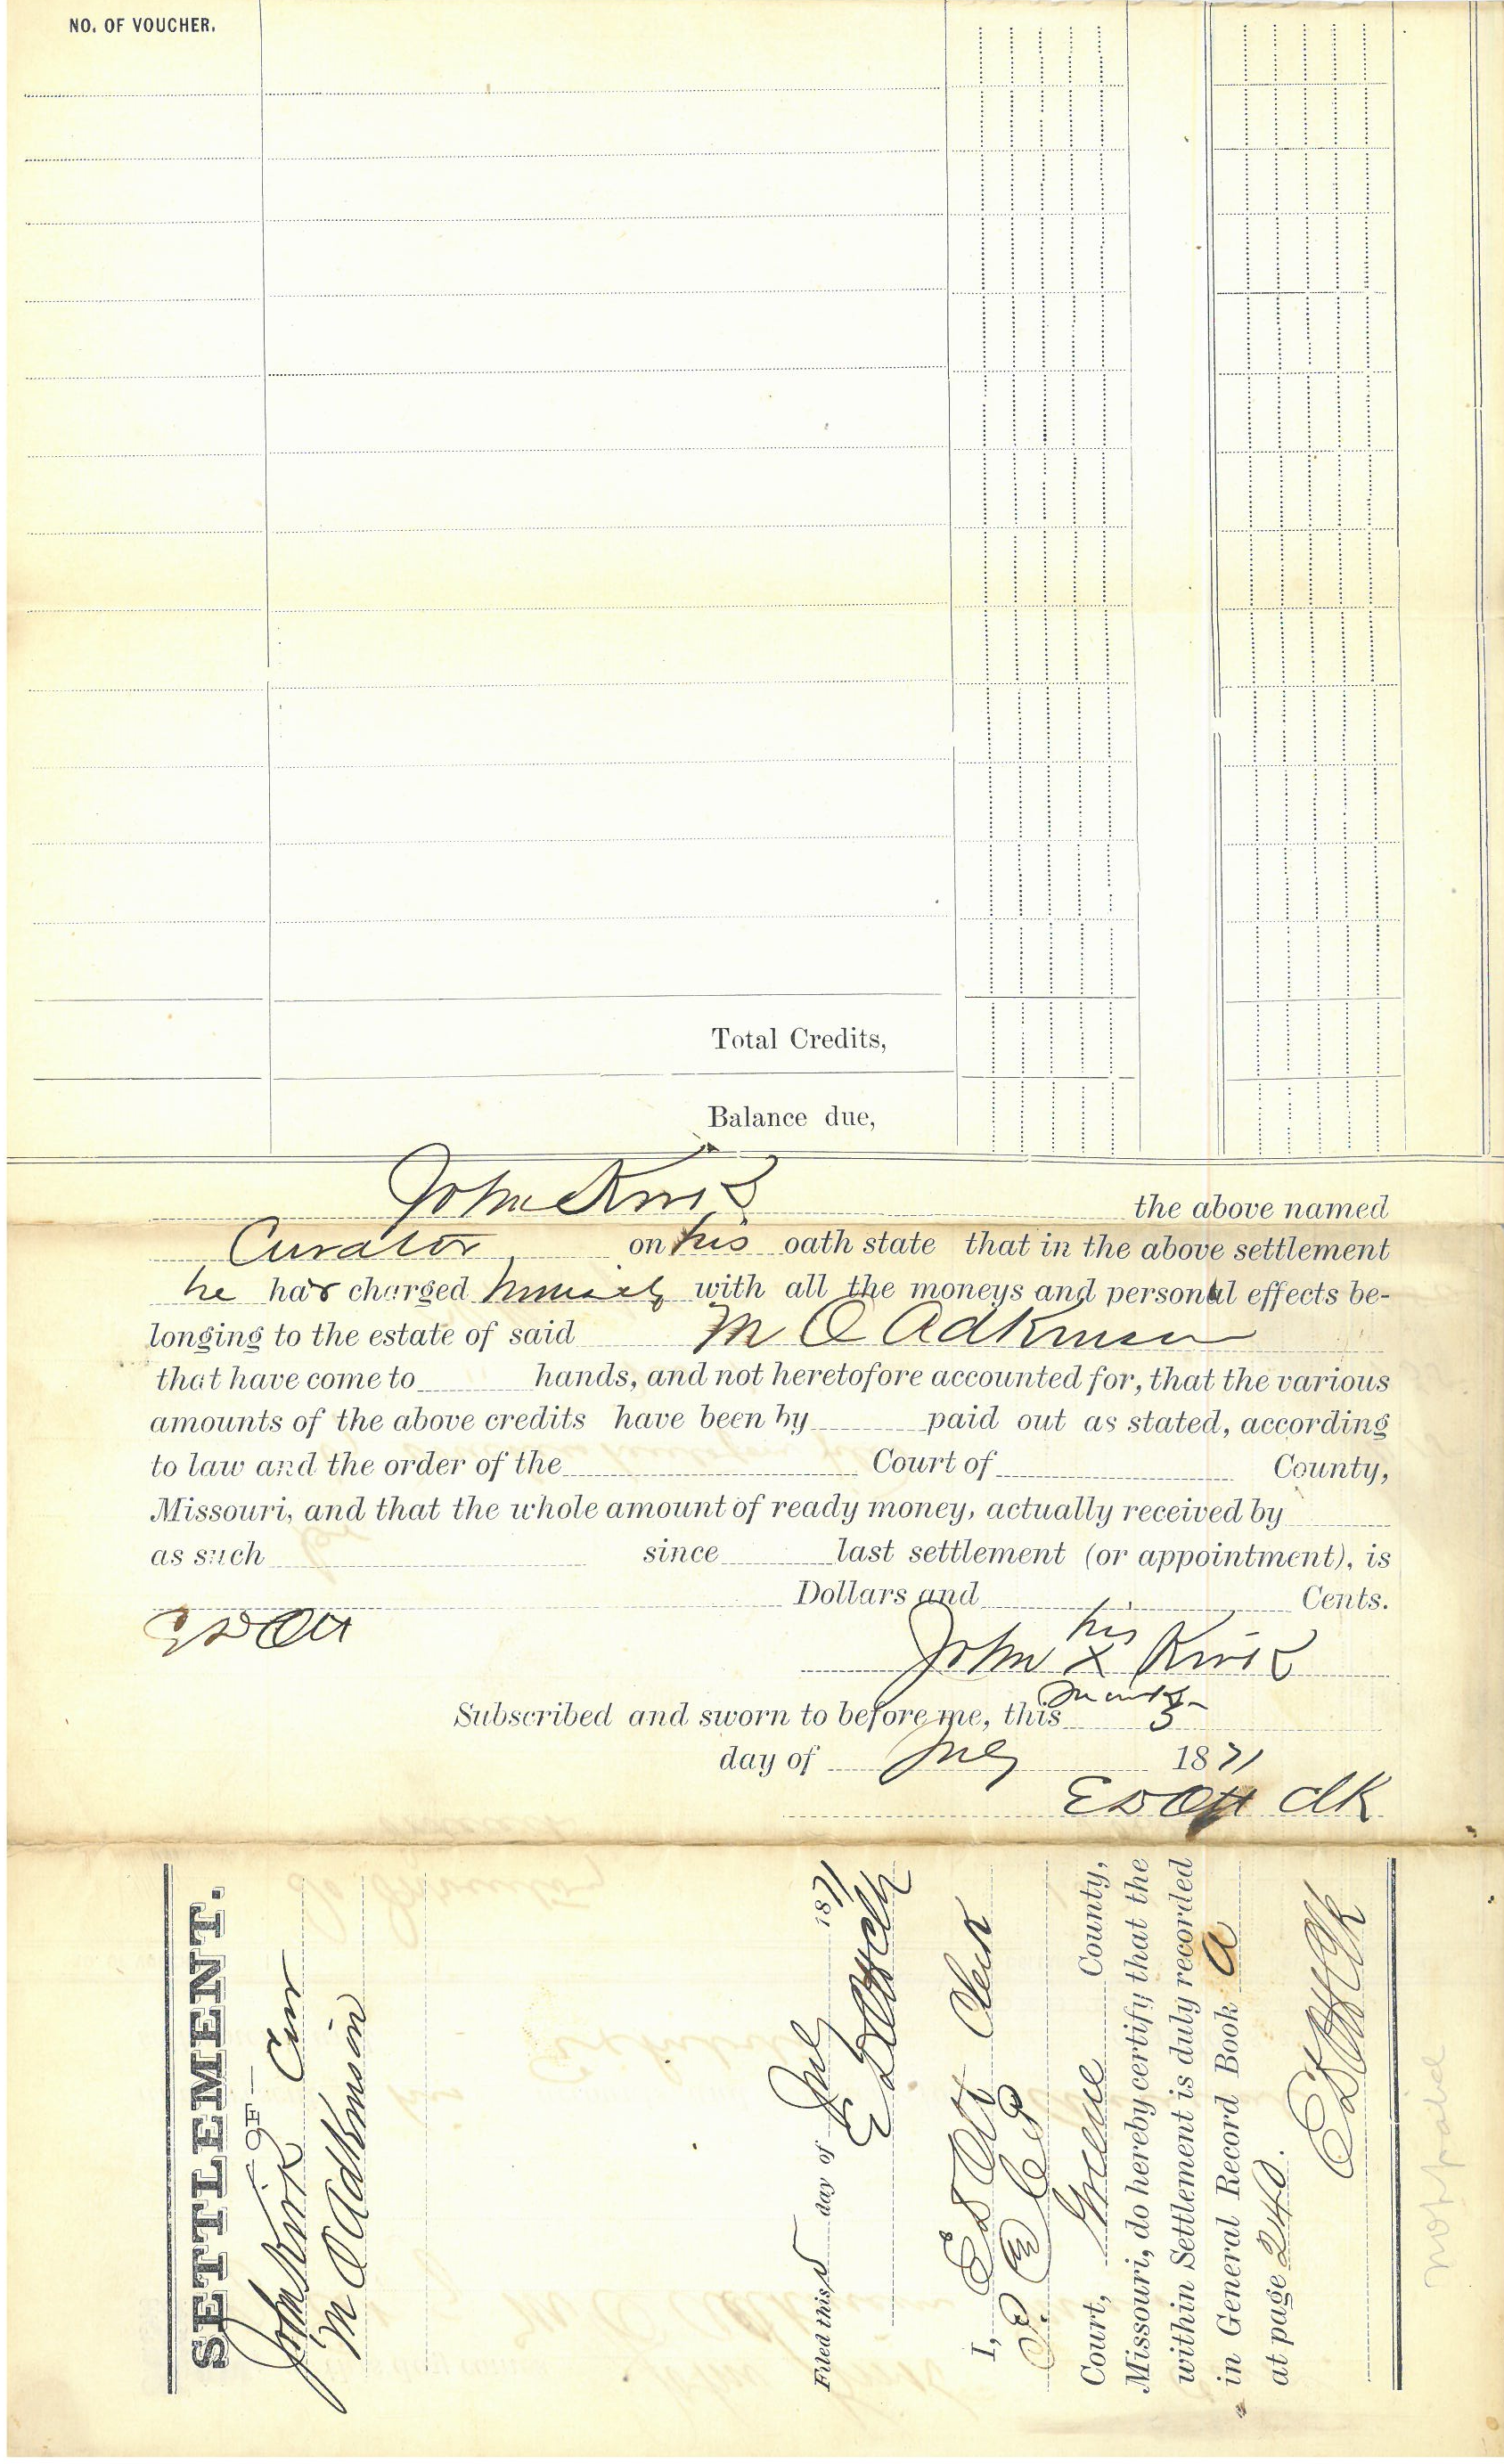 NO. OF VOUCHER.
Total Credits,
Balance due,
John Kirk the above named
Curator on his oath state that in the above settlement
he has charged himself with all the moneys and personal effects be-
longing to the estate of said M C Adkinson
that have come to hands, and not heretofore accounted for, that the various
amounts of the above credits have been by paid out as stated, according
to law and the order of the Court of County,
Missouri, and that the whole amount of ready money, actually received by
as such since last settlement (or appointment), is
Dollars and Cents.
E D Ott
his
John X Kirk
mark
Subscribed and sworn to before me, this 5
day of July 1871
E D Ott Clk
SETTLEMENT.
—OF—
John Kirk Cur
M C Adkinson
Filed this 5 day of July 1871
E D Ott Clk
I, E D Ott Clerk
Court, Greene County,
Missouri, do hereby certify that the
within Settlement is duly recorded
in General Record Book A
at page 240.
E D Ott Clk
not paid